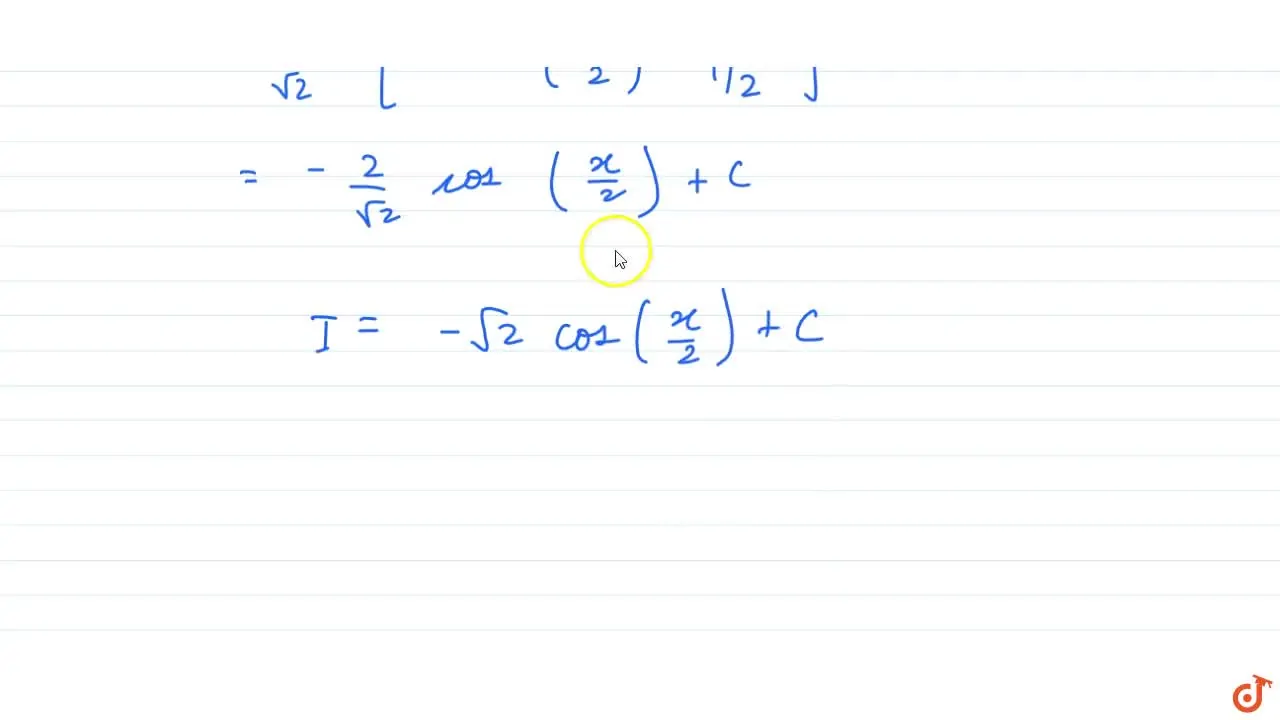 √2 [ ( 2 ) 1/2 ]
= - 2/√2 cos (x/2) + C
I = -√2 cos (x/2) + C